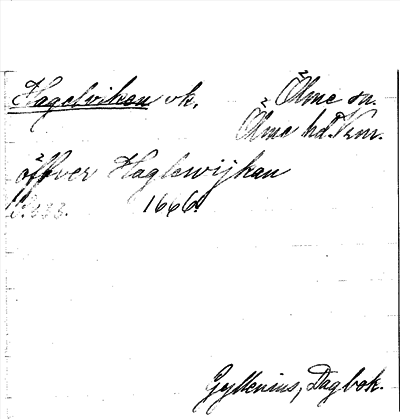 Hagelviken vk. Ölme sn.
Ölme hd. Vrm.
öffver Haglewijkan
S. 233. 1666.
Gyllenius, Dagbok.